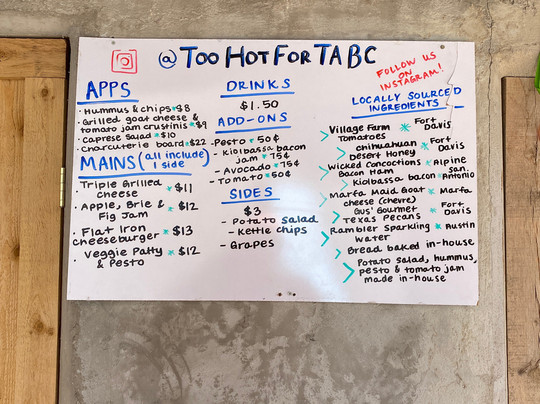 @TOO HOT FOR TABC
FOLLOW US
ON
INSTAGRAM!
APPS
· Hummus & chips * $8
· Grilled goat cheese &
tomato jam crustinis * $9
· Caprese Salad * $10
· Charcuterie board * $22
MAINS (all include
1 side)
Triple Grilled
Cheese * $11
· Apple, Brie &
Fig Jam * $12
· Flat Iron
cheeseburger * $13
· Veggie Patty
& Pesto * $12
DRINKS
$1.50
ADD-ONS
- Pesto * 50¢
- Kiolbassa bacon
jam * 75¢
- Avocado * 75¢
- Tomato * 50¢
SIDES
$3
- Potato Salad
- Kettle chips
- Grapes
LOCALLY SOURCED
INGREDIENTS
> Village Farm * Fort
Tomatoes Davis
> chihuahuan * Fort
Desert Honey Davis
> Wicked Concoctions * Alpine
Bacon Ham
> Kiolbassa bacon * San
Antonio
> Marfa Maid Goat * Marfa
cheese (chevre)
> Gus' Gourmet * Fort
Texas Pecans Davis
> Rambler Sparkling * Austin
Water
> Bread baked in-house
> Potato salad, hummus,
pesto & tomato jam
made in-house